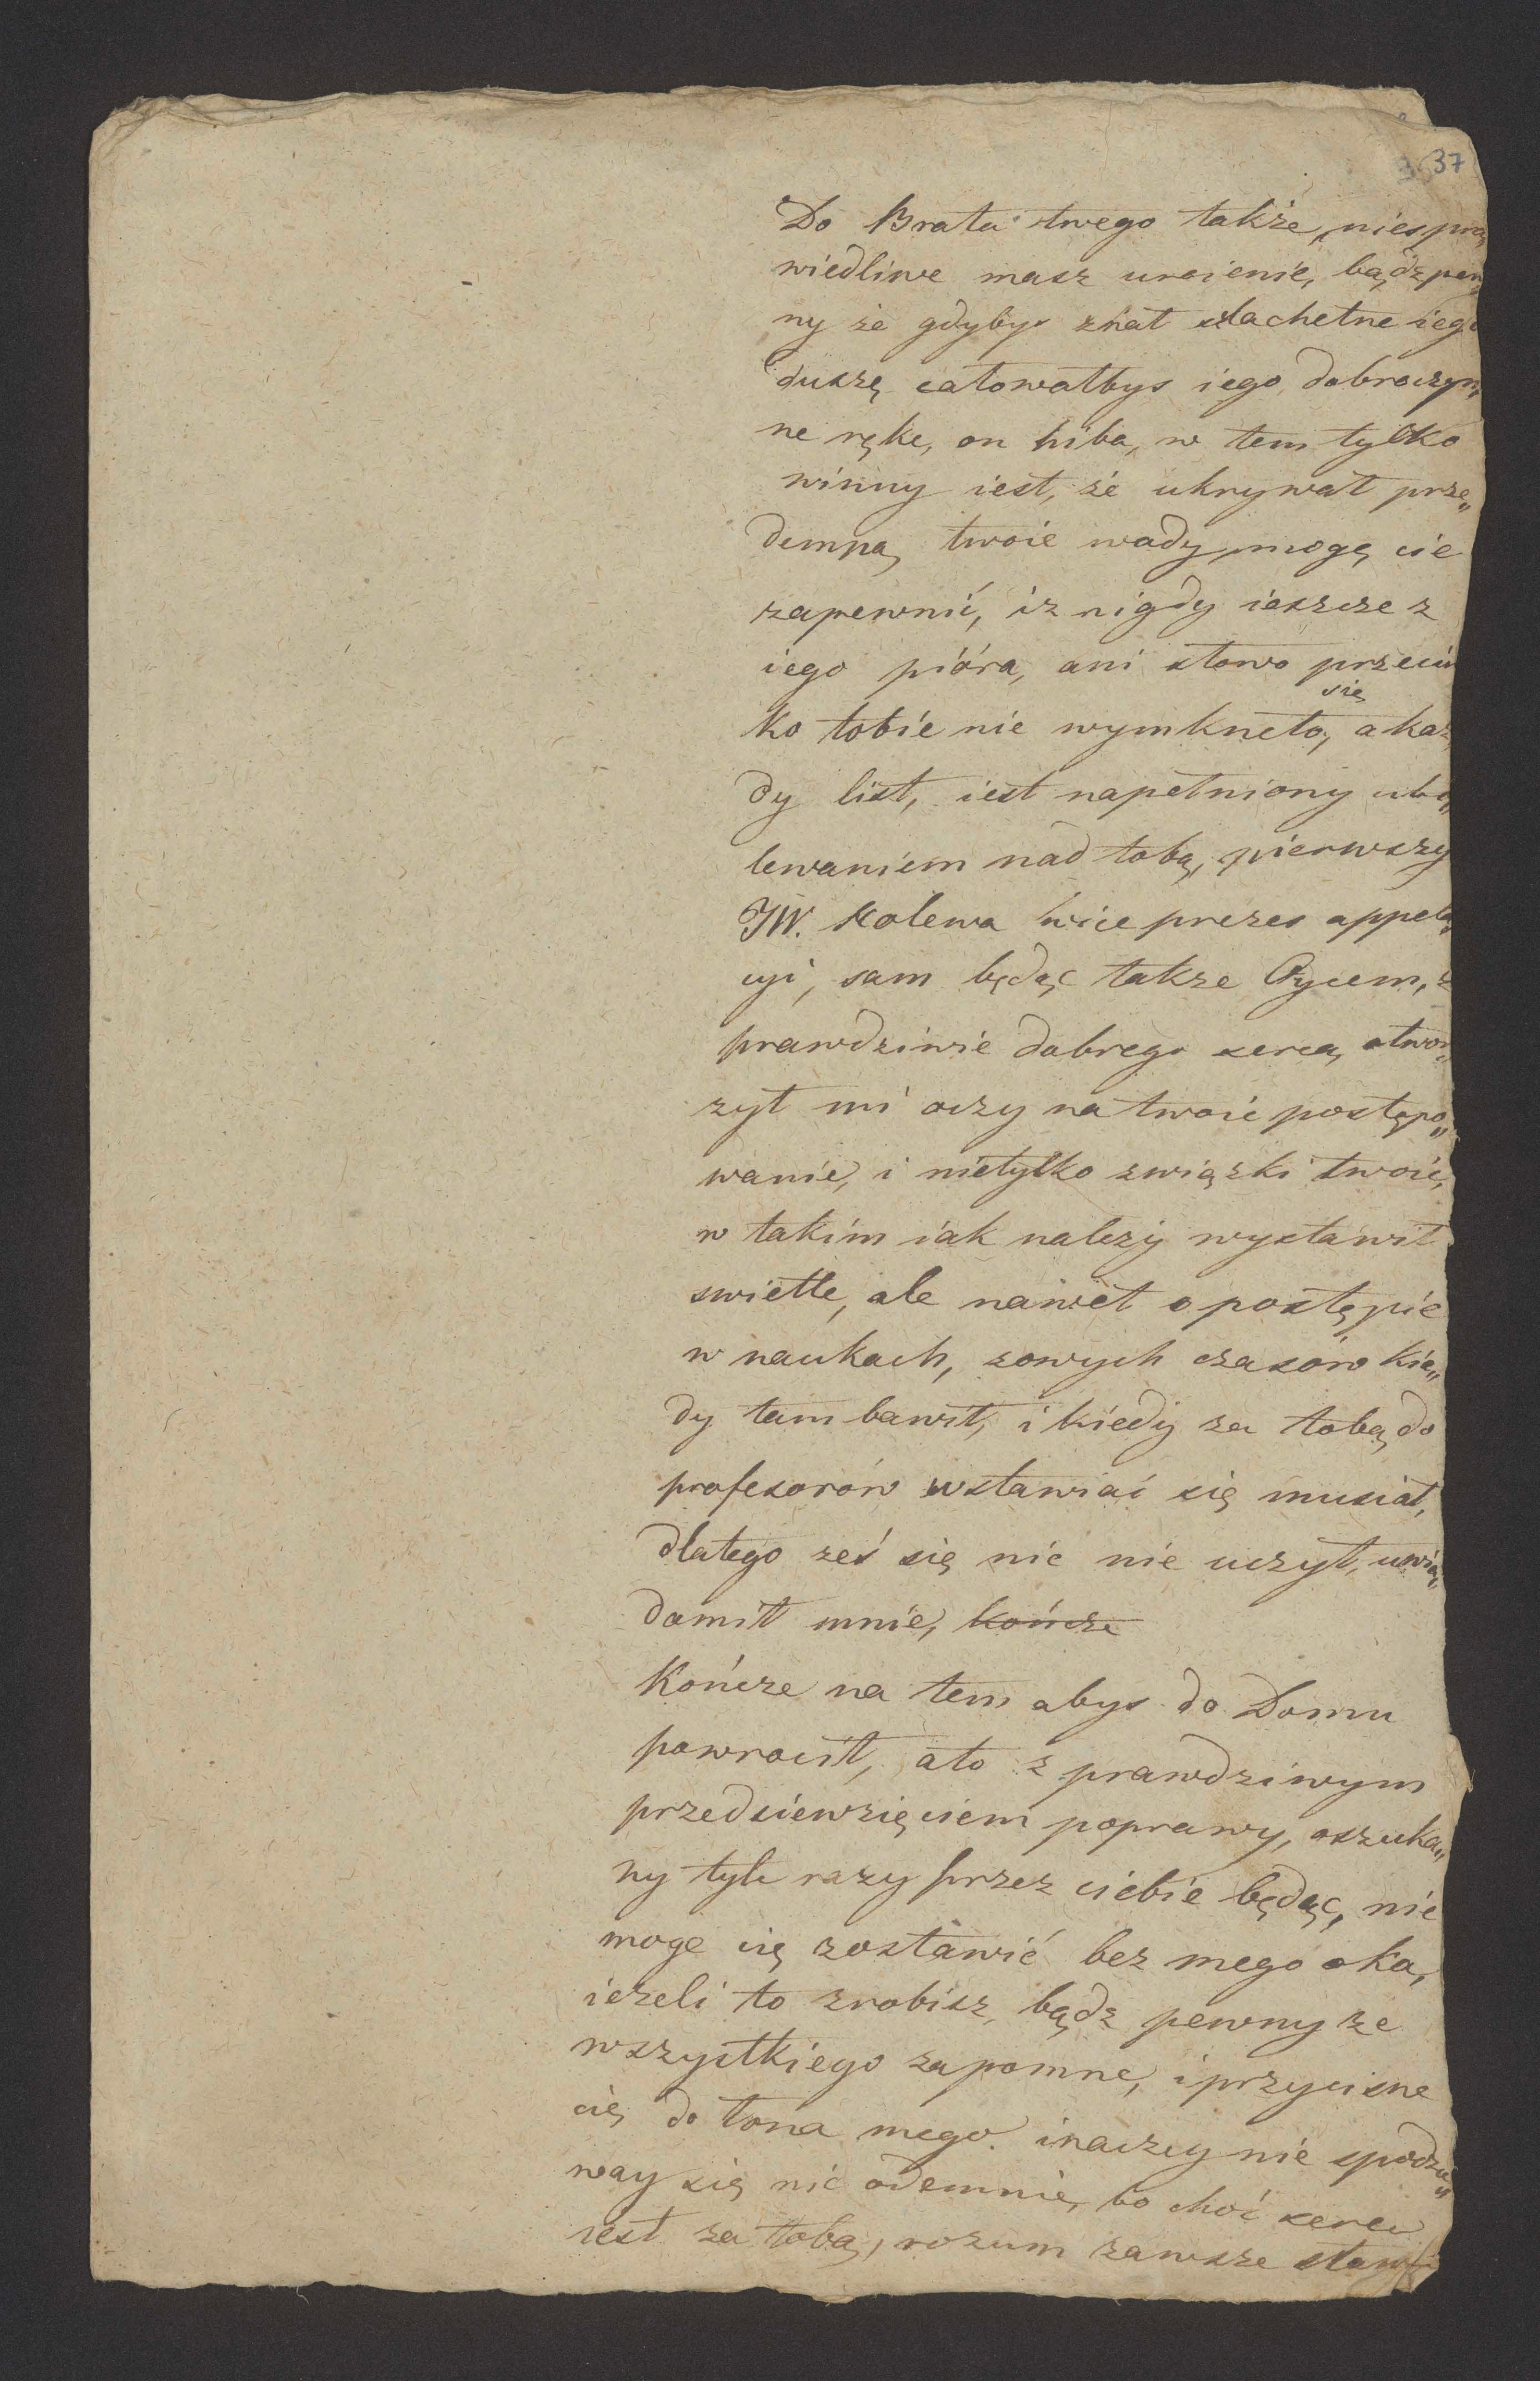 37
Do Brata twego także niespra„
wiedliwe masz urcienie, bądz pew„
ny że gdybys znał szlachetne iego
duszę całowałbys iego dobroczyn„
ne ręke, on hiba, w tem tylko
winny iest, że ukrywał prze„
demną twoie wady, mogę cie
zapewnić, iz nigdy ieszcze z
iego pióra, ani słowo przeciw
się
ko tobie nie wymkneło, a kaz„
dy list, iest napełniony ubo„
lewaniem nad tobą, pierwszy
JW. Kolewa wice prezes appela„
cyi, sam będąc takze Oycem, z
prawdziwie dobrego serca, otwor„
zył mi oczy na twoie postępo„
wanie, i nietylko związki twoie,
w takim iak nalezy wystawił
swietle, ale nawet o postępie
w naukach, zowych czasów kie„
dy tam bawił, i kiedy za tobą do
profesorów wstawiać się musiał,
dlatego ześ się nic nie uczył, uwia„
domił mnie, kończe
Kończe na tem abys do Domu
powrocił, ato z prawdziwym
przedsiewzięciem poprawy, oszuka„
ny tyle razy przez ciebie będąc, nie
moge cię zostawić bez mego oka,
iezeli to zrobisz, bądz pewny ze
wszystkiego zapomne, i przycisne
cię do łona mego. inaczey nie spodzie„
way się nic odemnie, bo choć serce
iest za tobą, rozum zawsze stawi